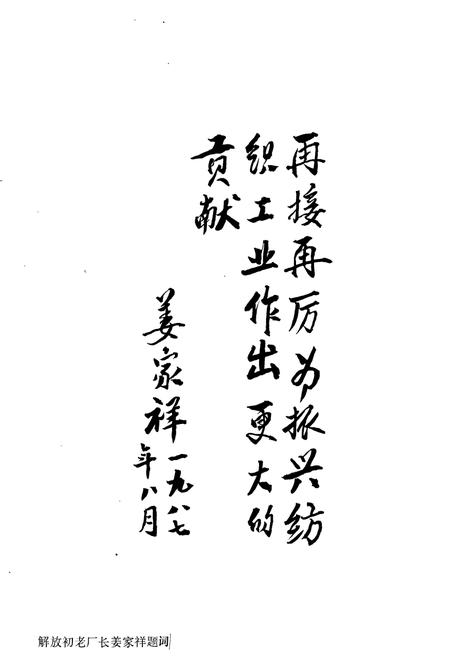 再接再厉为振兴纺
织工业作出更大的
贡献
姜家祥一九八七
年八月
解放初老厂长姜家祥题词